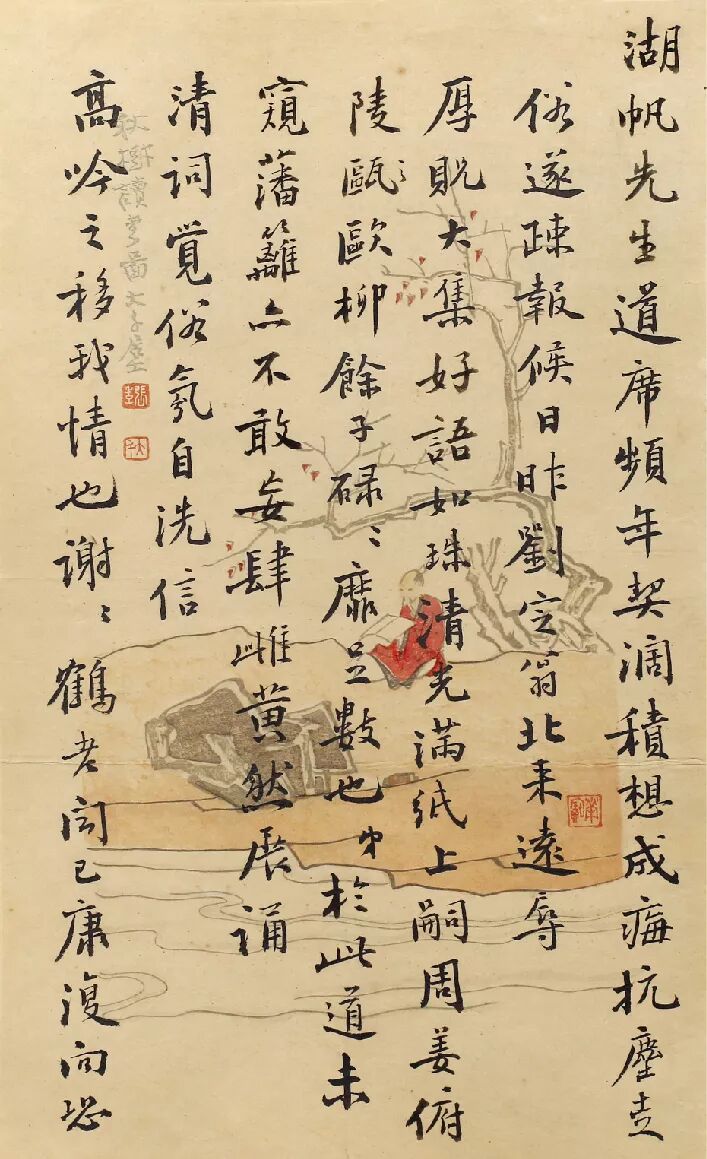 湖帆先生道席頻年契闊積想成痗抗塵走
俗遂疎報候日昨劉定翁北来遠辱
厚貺大集好語如珠清光滿紙上嗣周姜俯
陵甌歐柳餘子碌〻靡足數也弟於此道未
窺藩籬亦不敢妄肆雌黄然展誦
清詞覺俗氛自洗信
高吟之移我情也謝〻鶴老聞已康復向恐
秋樹讀書圖大千居士
張爰
大千